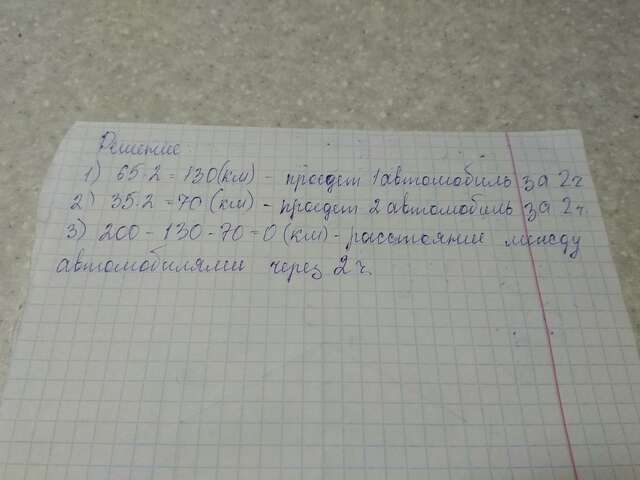 Решение
1) 65·2=130(км) - проедет 1автомобиль за 2ч
2) 35·2=70 (км) - проедет 2 автомобиль за 2ч.
3) 200-130-70=0 (км) - расстояние между
автомобилями через 2ч.